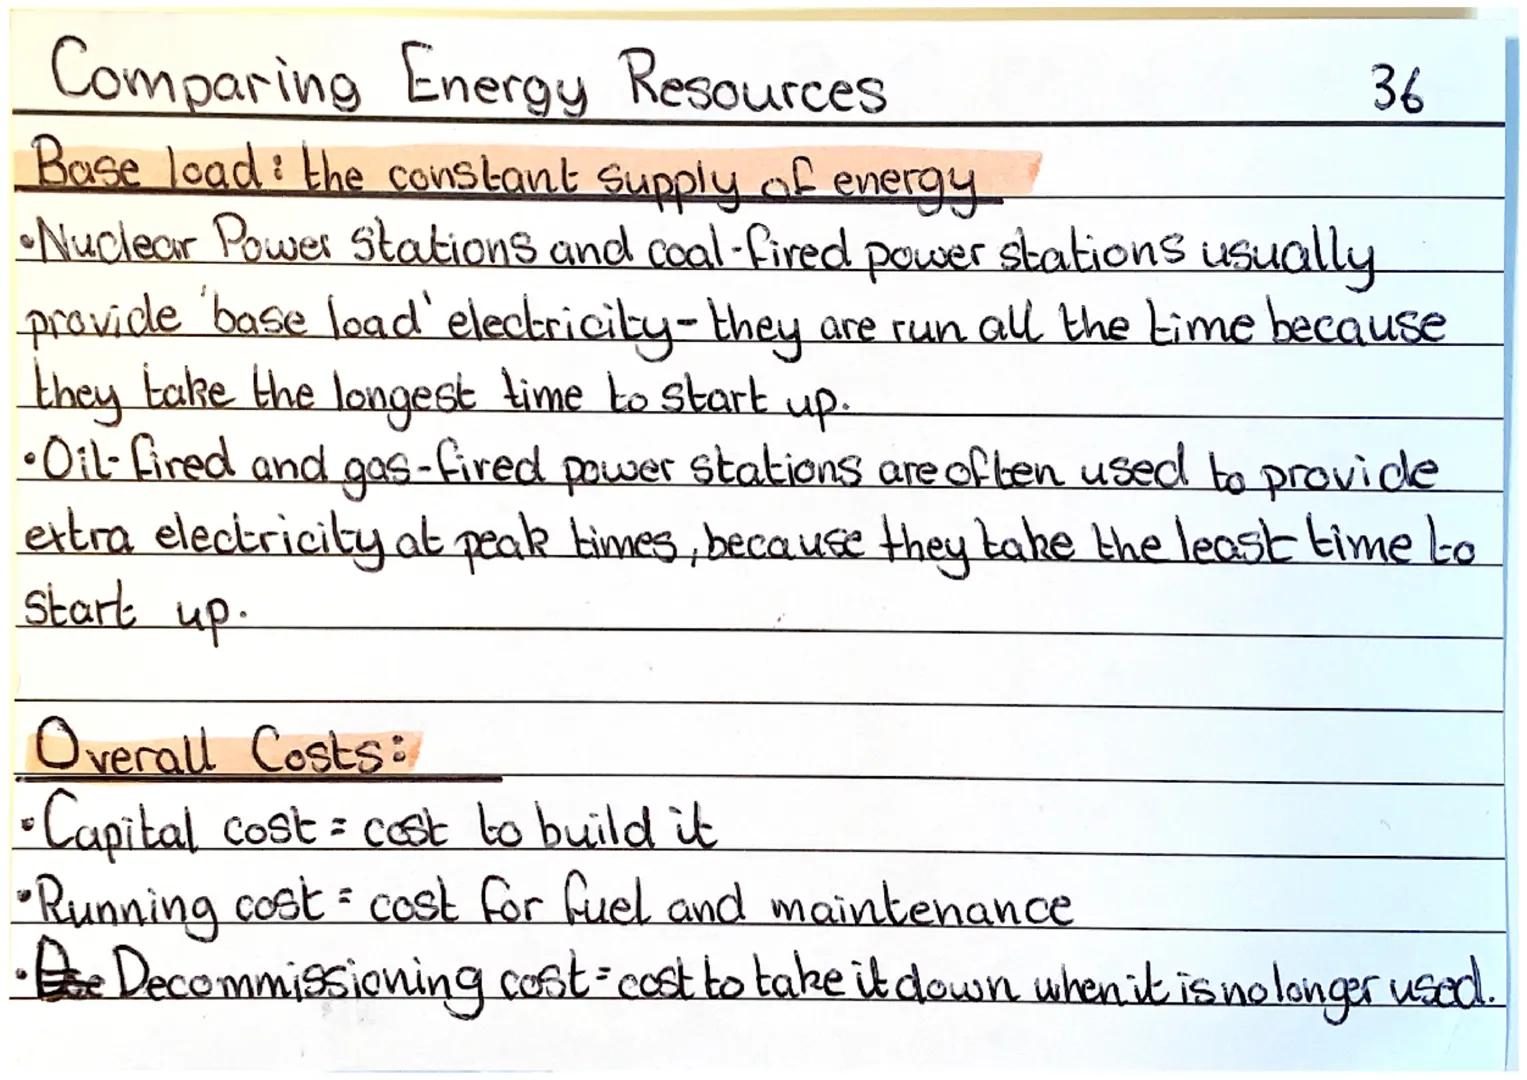 Comparing Energy Resources 36
Base load: the constant supply of energy
•Nuclear Power Stations and coal-fired power stations usually
provide 'base load' electricity - they are run all the time because
they take the longest time to start up.
•Oil-fired and gas-fired power stations are often used to provide
extra electricity at peak times, because they take the least time to
start up.
Overall Costs:
•Capital cost = cost to build it
•Running cost = cost for fuel and maintenance
•Decommissioning cost = cost to take it down when it is no longer used.